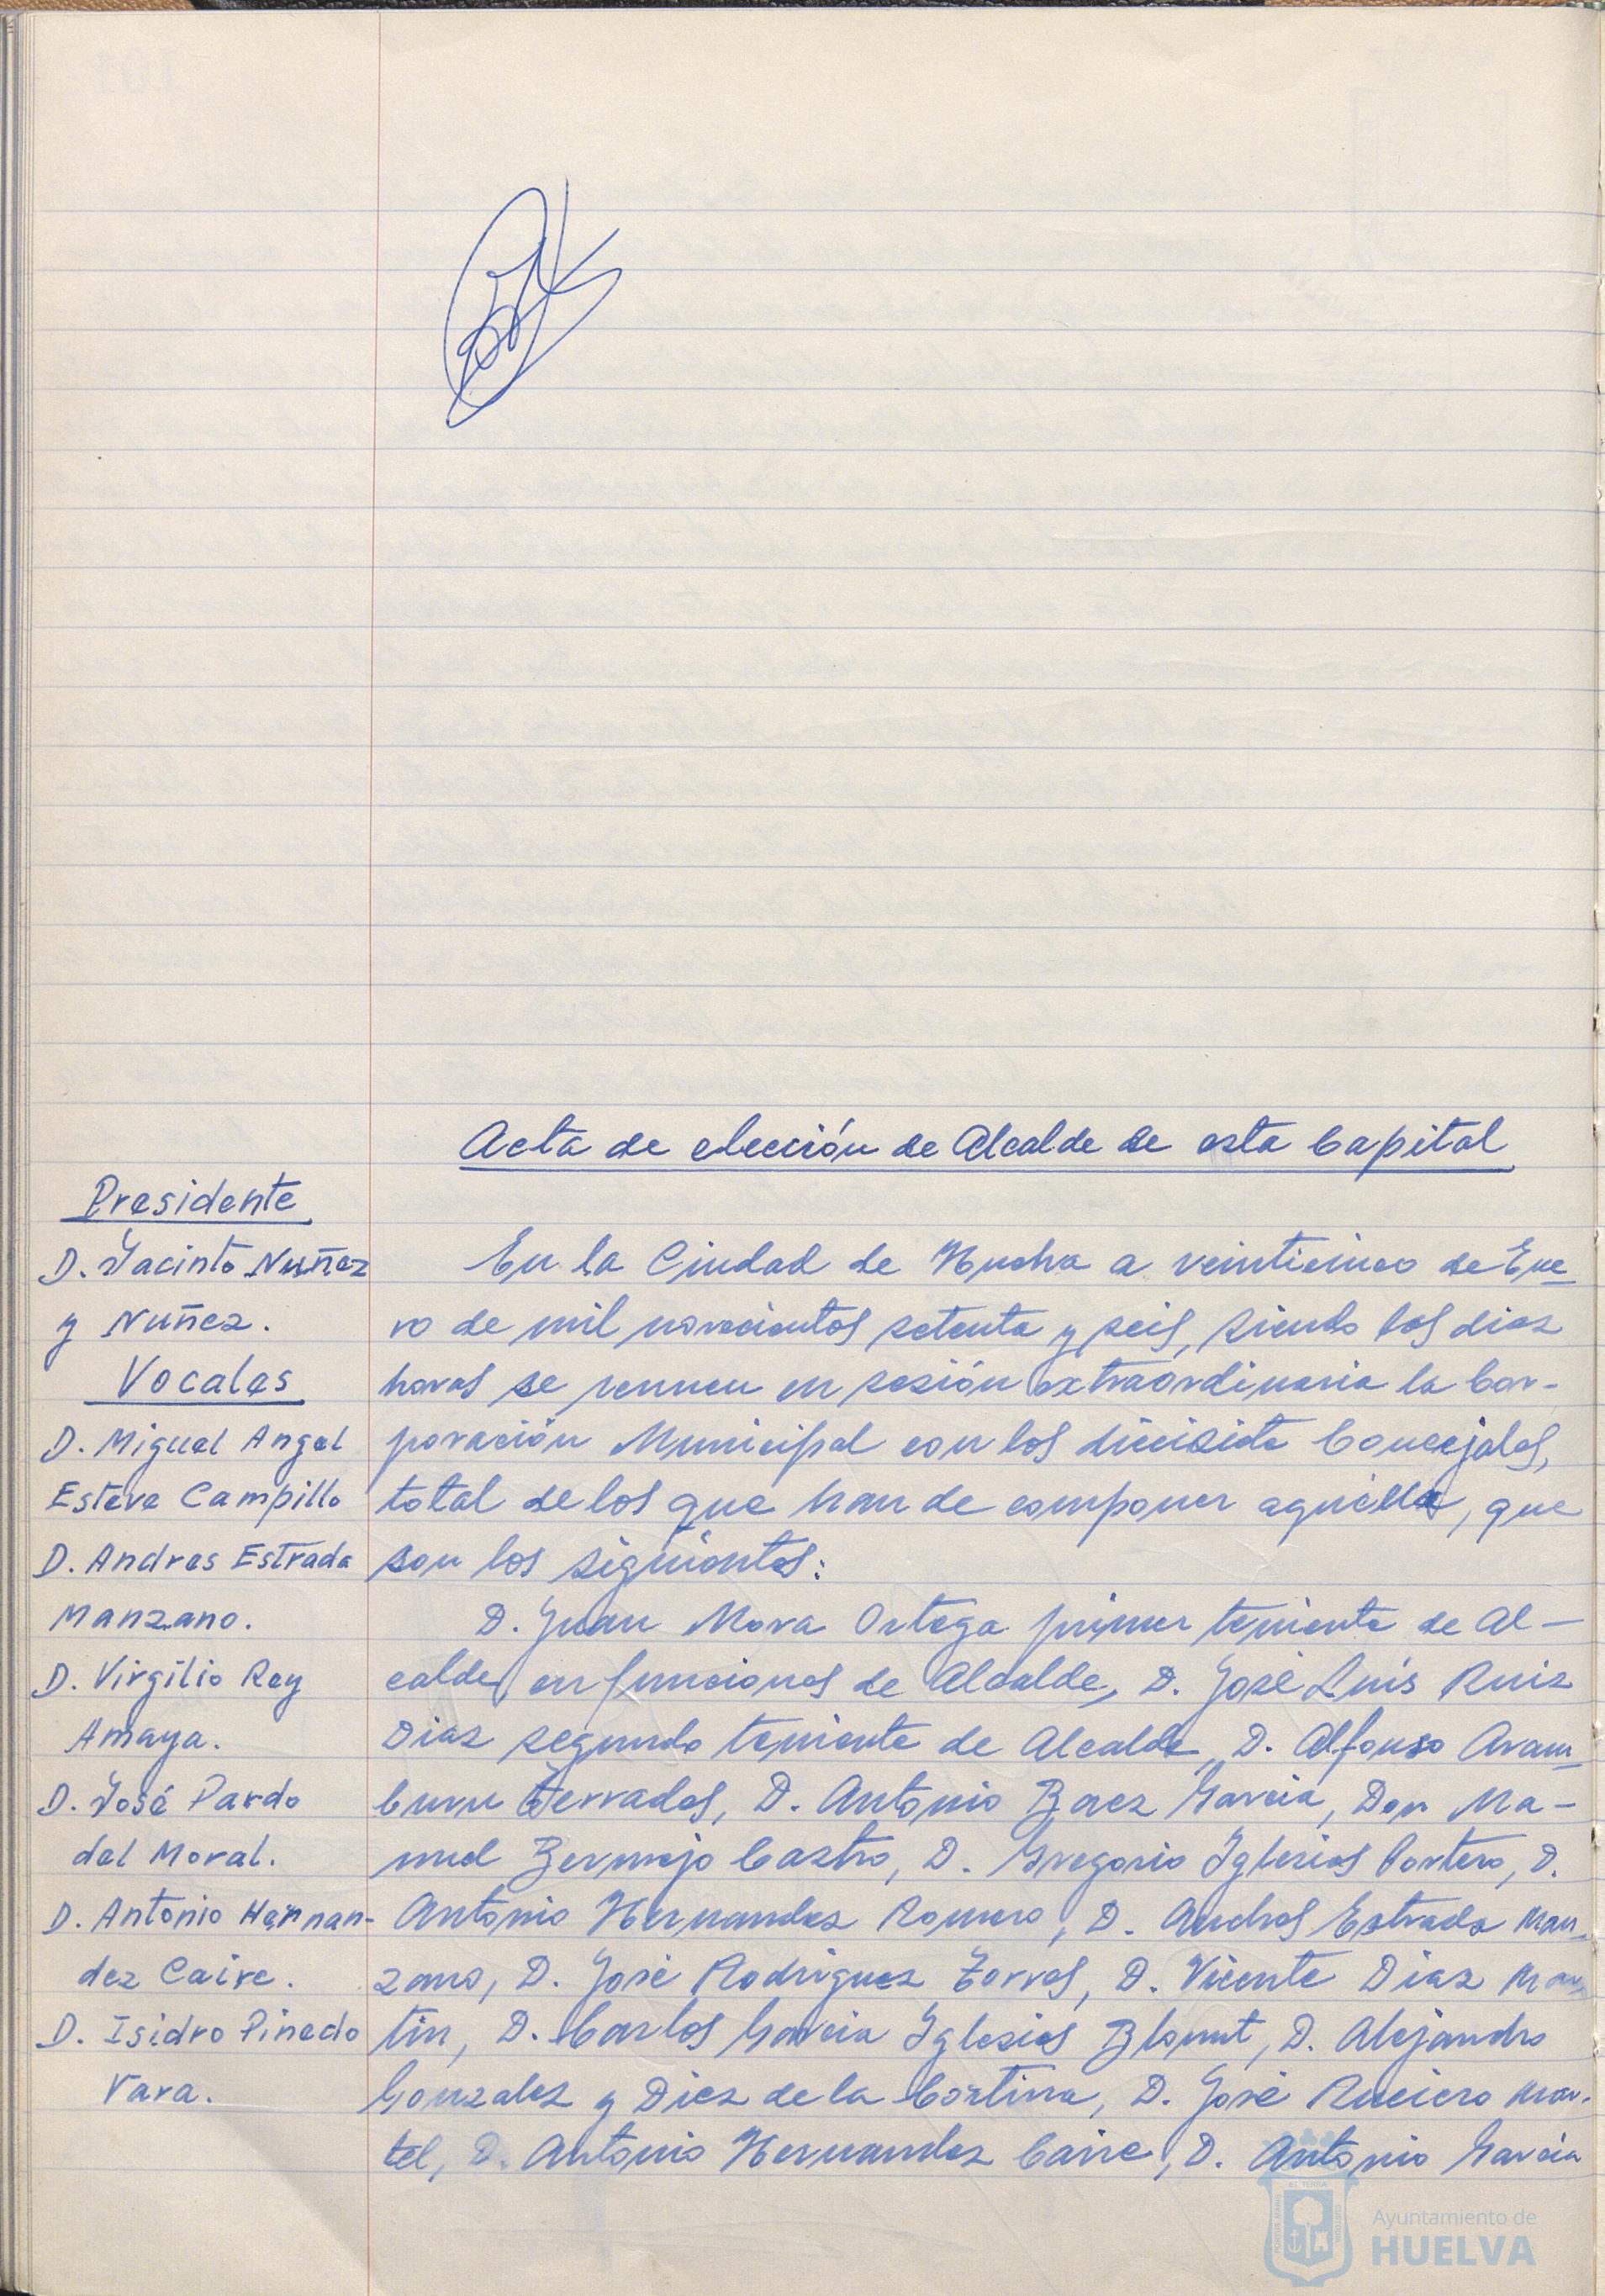 Acta de elección de Alcalde de esta Capital
Presidente
D. Jacinto Nuñez
y Nuñez.
Vocales
D. Miguel Angel
Esteve Campillo
D. Andres Estrada
Manzano.
D. Virgilio Rey
Amaya.
D. José Pardo
del Moral.
D. Antonio Hernan-
dez Caire.
D. Isidro Pinedo
Vara.
En la Ciudad de Huelva a veinticinco de Ene
ro de mil novecientos setenta y seis, siendo las diez
horas se reunen en sesión extraordinaria la Cor-
poración Municipal con los diecisiete Concejales,
total de los que han de componer aquélla, que
son los siguientes:
D. Juan Mora Ortega primer teniente de Al-
calde, en funciones de Alcalde, D. José Luis Ruiz
Diaz segundo teniente de Alcalde, D. Alfonso Aram
buru Terrades, D. Antonio Baez Garcia, Don Ma-
nuel Bermejo Castro, D. Gregorio Iglesias Portero, D.
Antonio Hernandez Romero, D. Andres Estrada Man
zano, D. José Rodriguez Torres, D. Vicente Diaz Mar
tin, D. Carlos Garcia Iglesias Blanut, D. Alejandro
Gonzalez y Diez de la Cortina, D. José Ruciero Mar-
tel, D. Antonio Hernandez Caire, D. Antonio Garcia
Ayuntamiento de
HUELVA